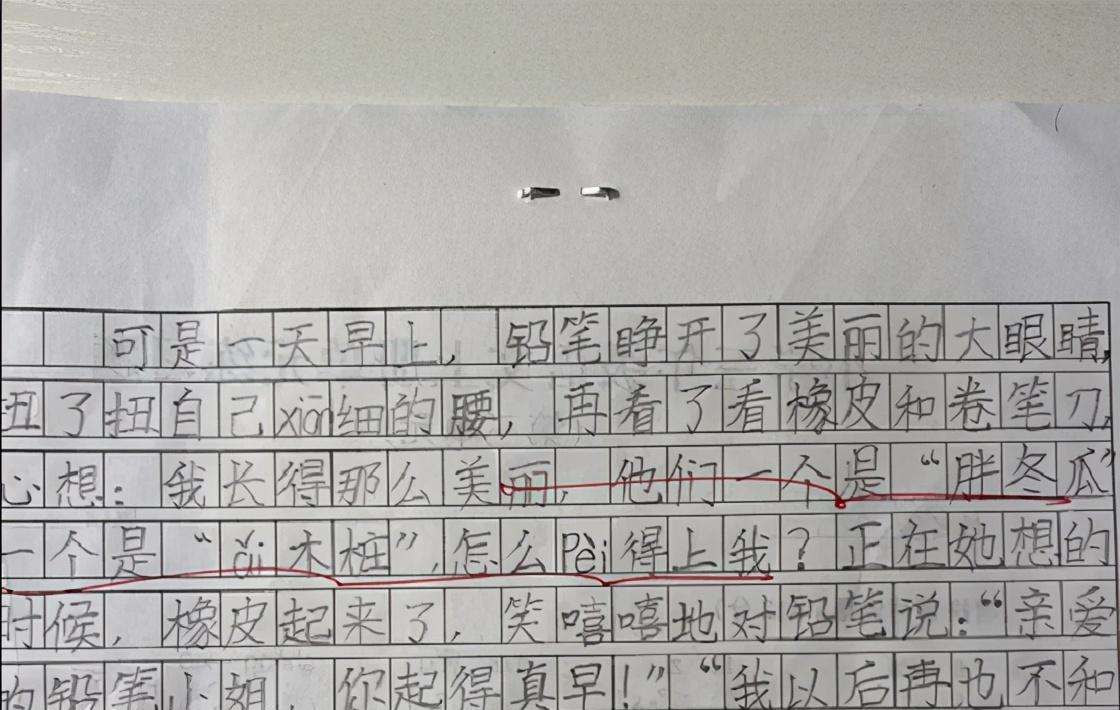 可是一天早上，铅笔睁开了美丽的大眼睛，
扭了扭自己xiān细的腰，再看了看橡皮和卷笔刀，
心想：我长得那么美丽，他们一个是“胖冬瓜”
一个是“ǎi木桩”，怎么Pèi得上我？正在她想的
时候，橡皮起来了，笑嘻嘻地对铅笔说：“亲爱
的铅笔小姐，你起得真早！”“我以后再也不和